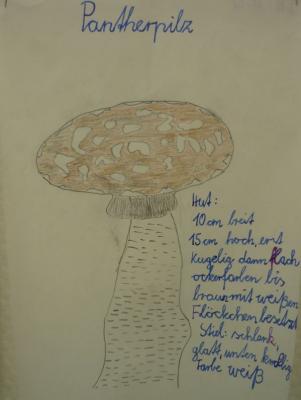 Pantherpilz
Hut:
10 cm breit
15 cm hoch, erst
Kugelig dann flach
ockerfarben bis
braun mit weißen
Flöckchen besetzt
Stiel: schlank,
glatt, unten knollig
Farbe weiß